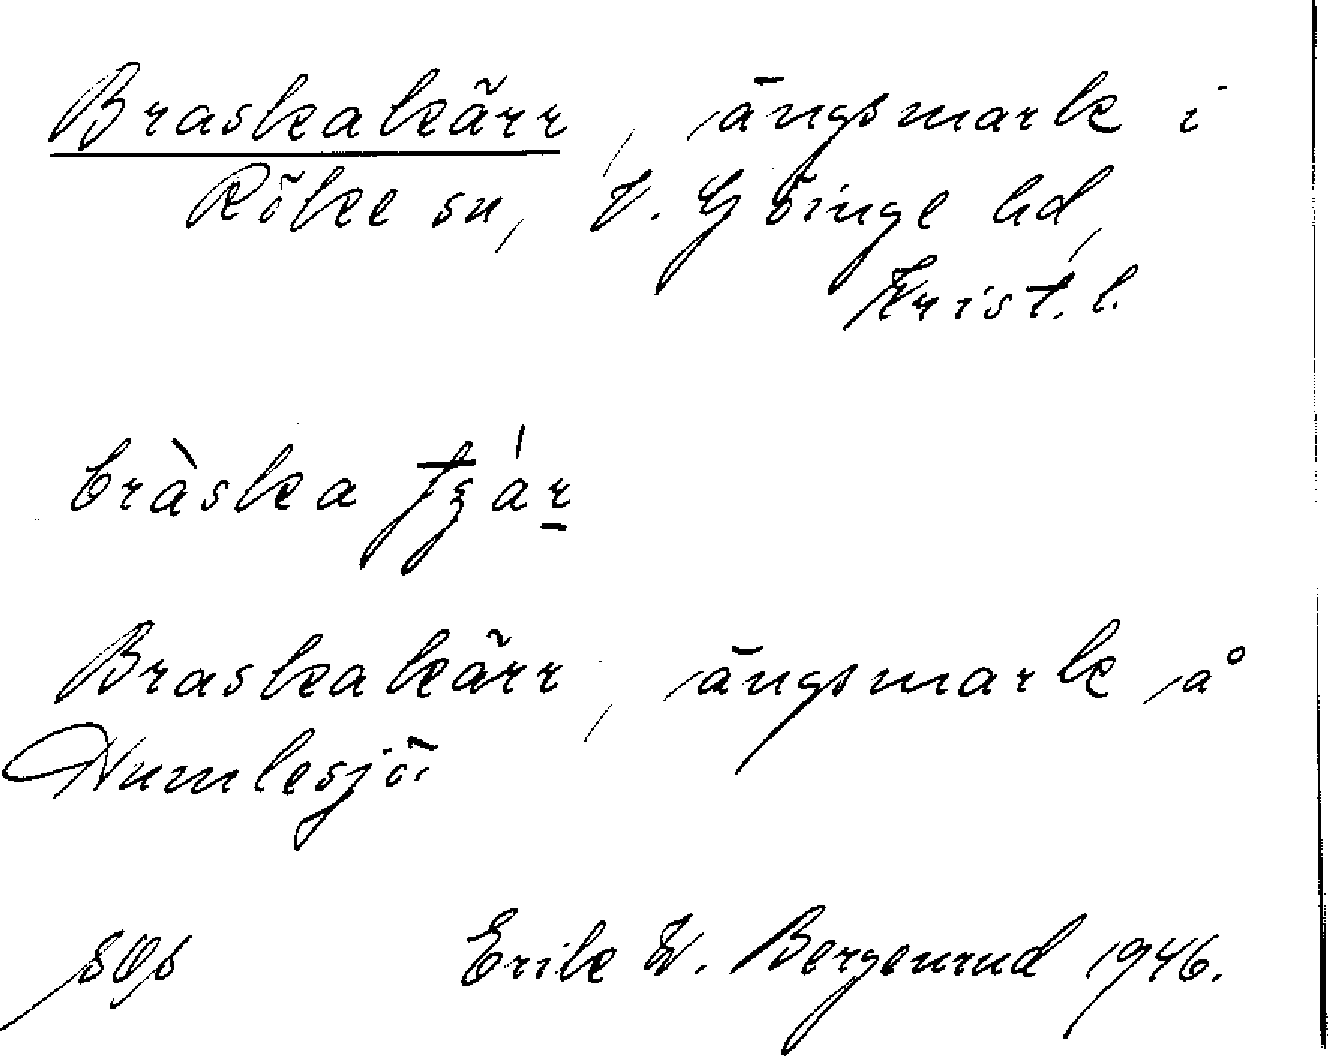 Braskakärr, ängsmark i
Röke sn, V. Göinge hd,
Krist. l.
bràska
Braskakärr, ängsmark å
Humlesjö
Erik W. Bergenrud 1946.